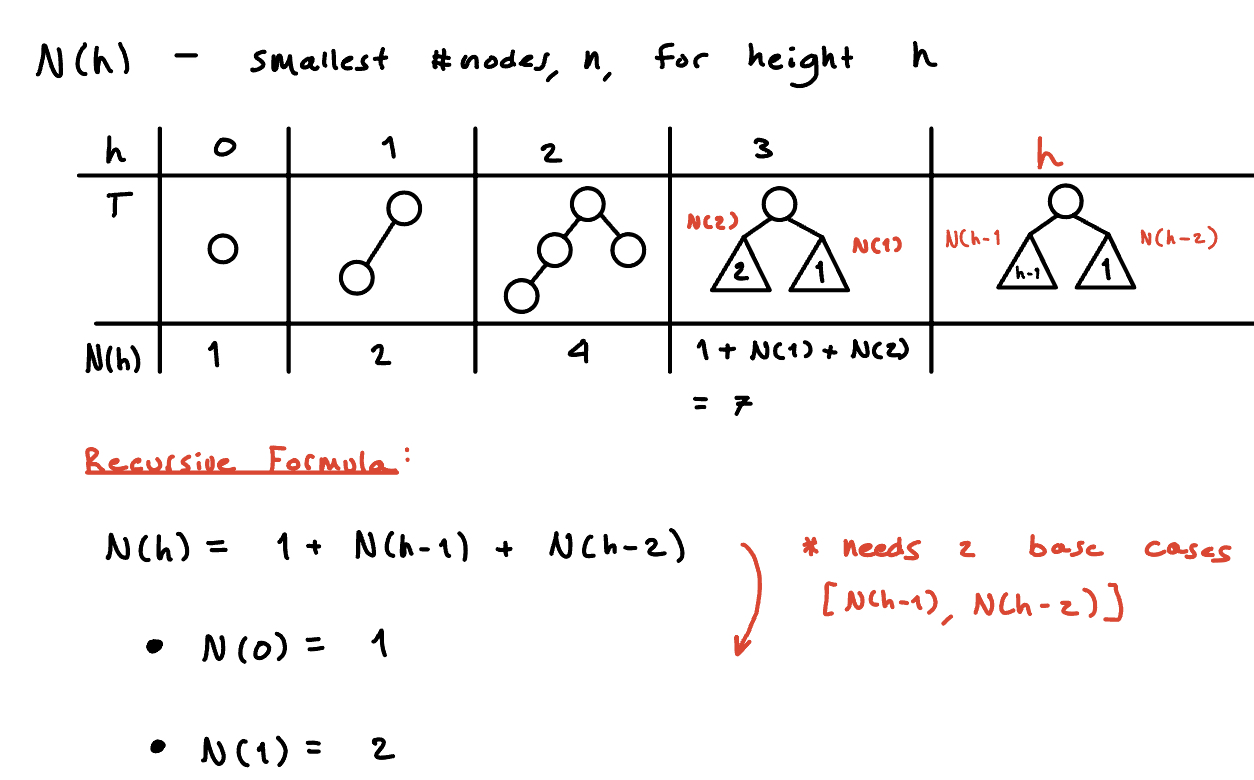 N(h) - smallest #nodes, n, for height h
h 0 1 2 3 h
T
N(2) N(1) N(h-1 N(h-2)
2 1 h-1 1
N(h) 1 2 4 1 + N(1) + N(2)
= 7
Recursive Formula:
N(h) = 1 + N(h-1) + N(h-2) * needs 2 base cases
[N(h-1), N(h-2)]
• N(0) = 1
• N(1) = 2